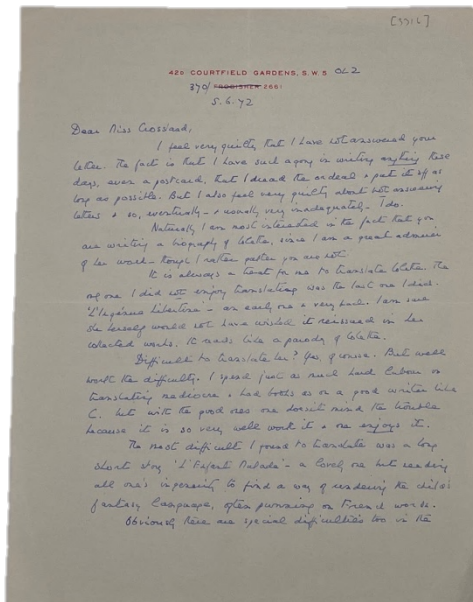 [5516]
42B COURTFIELD GARDENS, S.W.5 OLZ
370/ FROBISHER 2661
5.6.72
Dear Miss Crosland,
I feel very guilty that I have not answered your
letter. The fact is that I have such agony in writing anything these
days, even a postcard, that I dread the ordeal & put it off as
long as possible. But I also feel very guilty about not answering
letters & so, eventually - & usually very inadequately - I do.
Naturally I am most interested in the fact that you
are writing a biography of Colette, since I am a great admirer
of her work - though I rather gather you are not.
It is always a treat for me to translate Colette. The
only one I did not enjoy translating was the last one I did.
'L'Ingénue Libertine' - an early one & very bad. I am sure
she herself would not have wished it reissued in her
collected works. It reads like a parody of Colette.
Difficult to translate her? Yes, of course. But well
worth the difficulty. I spend just as much hard labour on
translating mediocre & bad books as on a good writer like
C. but with the good ones one doesn't mind the trouble
because it is so very well worth it & one enjoys it.
The most difficult I found to translate was a long
short story 'L'Enfant Malade' - a lovely one but needing
all one's ingenuity to find a way of rendering the child's
fantasy language, often punning on French words.
Obviously there are special difficulties too in the